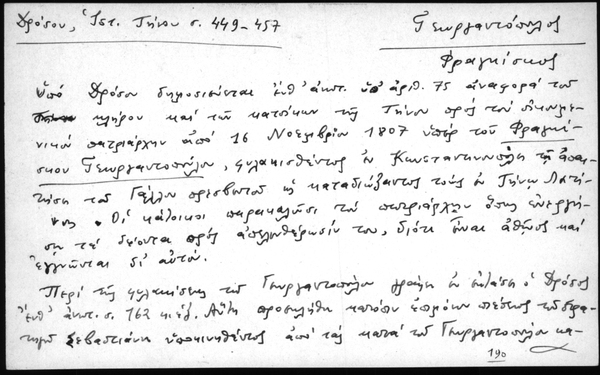 Δρόσου, Ἱστ. Τήνου σ. 449-457
Γεωργαντόπουλος
Φραγκίσκος
Ὑπό Δρόσου δημοσιεύεται ἐνθ' ἀνωτ. ὑπ' ἀριθ. 75 ἀναφορά τοῦ
κλήρου καί τῶν κατοίκων τῆς Τήνου πρός τόν οἰκουμε-
νικόν πατριάρχην ἀπό 16 Νοεμβρίου 1807 ὑπέρ τοῦ Φραγκί-
σκου Γεωργαντοπούλου, φυλακισθέντος ἐν Κωνσταντινουπόλει τῇ ἀπαι-
τήσει τοῦ Γάλλου πρεσβευτοῦ ὡς καταδιώξαντος τούς ἐν Τήνῳ Λατί-
νους. Οἱ κάτοικοι παρακαλοῦσι τόν πατριάρχην ὅπως ἐνεργή-
σῃ τά δέοντα πρός ἀπελευθέρωσίν του, διότι εἶναι ἀθῶος καί
ἐγγυῶνται δι' αὐτόν.
Περί τῆς φυλακίσεως τοῦ Γεωργαντοπούλου γράφει ἐν ἐκτάσει ὁ Δρόσος
ἐνθ' ἀνωτ. σ. 162 κ. ἑξ. Αὕτη προεκλήθη κατόπιν ἐπιμόνου πιέσεως τοῦ στρα-
τηγοῦ Σεβαστιάνη ὑποκινηθέντος ἀπό τάς κατά τοῦ Γεωργαντοπούλου κα-
190